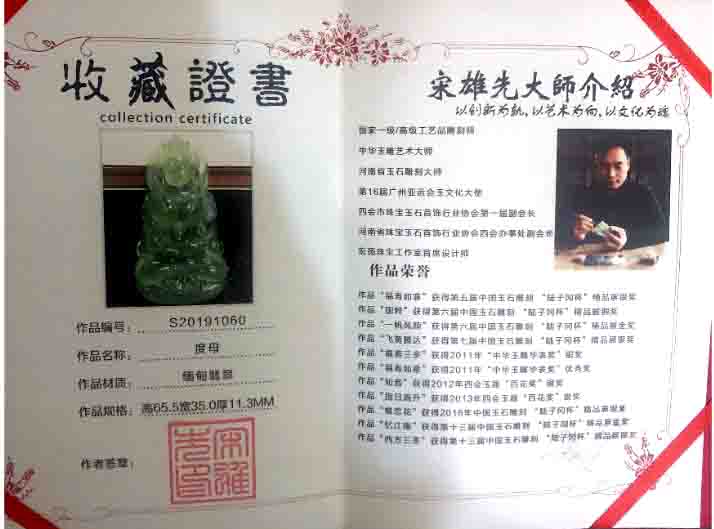 收藏證書
collection certificate
作品编号: S20191060
作品名称: 度母
作品材质: 缅甸翡翠
作品规格: 高65.5宽35.0厚11.3MM
作者签章:
宋雄先大師介紹
以创新为轨,以艺术为向,以文化为魂
国家一级/高级工艺品雕刻师
中华玉雕艺术大师
河南省玉石雕刻大师
第16届广州亚运会玉文化大使
四会市珠宝玉石首饰行业协会第一届副会长
河南省珠宝玉石首饰行业协会四会办事处副会长
珠宝工作室首席设计师
作品荣誉
作品“福寿如意”获得第五届中国玉石雕刻“陆子冈杯”精品展银奖
作品 获得第六届中国玉石雕刻“陆子冈杯”精品展铜奖
作品“一帆风顺”获得第六届中国玉石雕刻“陆子冈杯”精品展金奖
作品“飞黄腾达”获得第七届中国玉石雕刻“陆子冈杯”精品展银奖
作品 获得2011年“中华玉雕华表奖”银奖
作品 获得2011年“中华玉雕华表奖”优秀奖
作品 获得2012年四会玉器“百花奖”银奖
作品 获得2013年四会玉器“百花奖”银奖
作品 获得2016年中国玉石雕刻“陆子冈杯”精品展银奖
作品“忆江南”获得第十三届中国玉石雕刻“陆子冈杯”精品展金奖
作品“西方三圣”获得第十三届中国玉石雕刻“陆子冈杯”精品展银奖